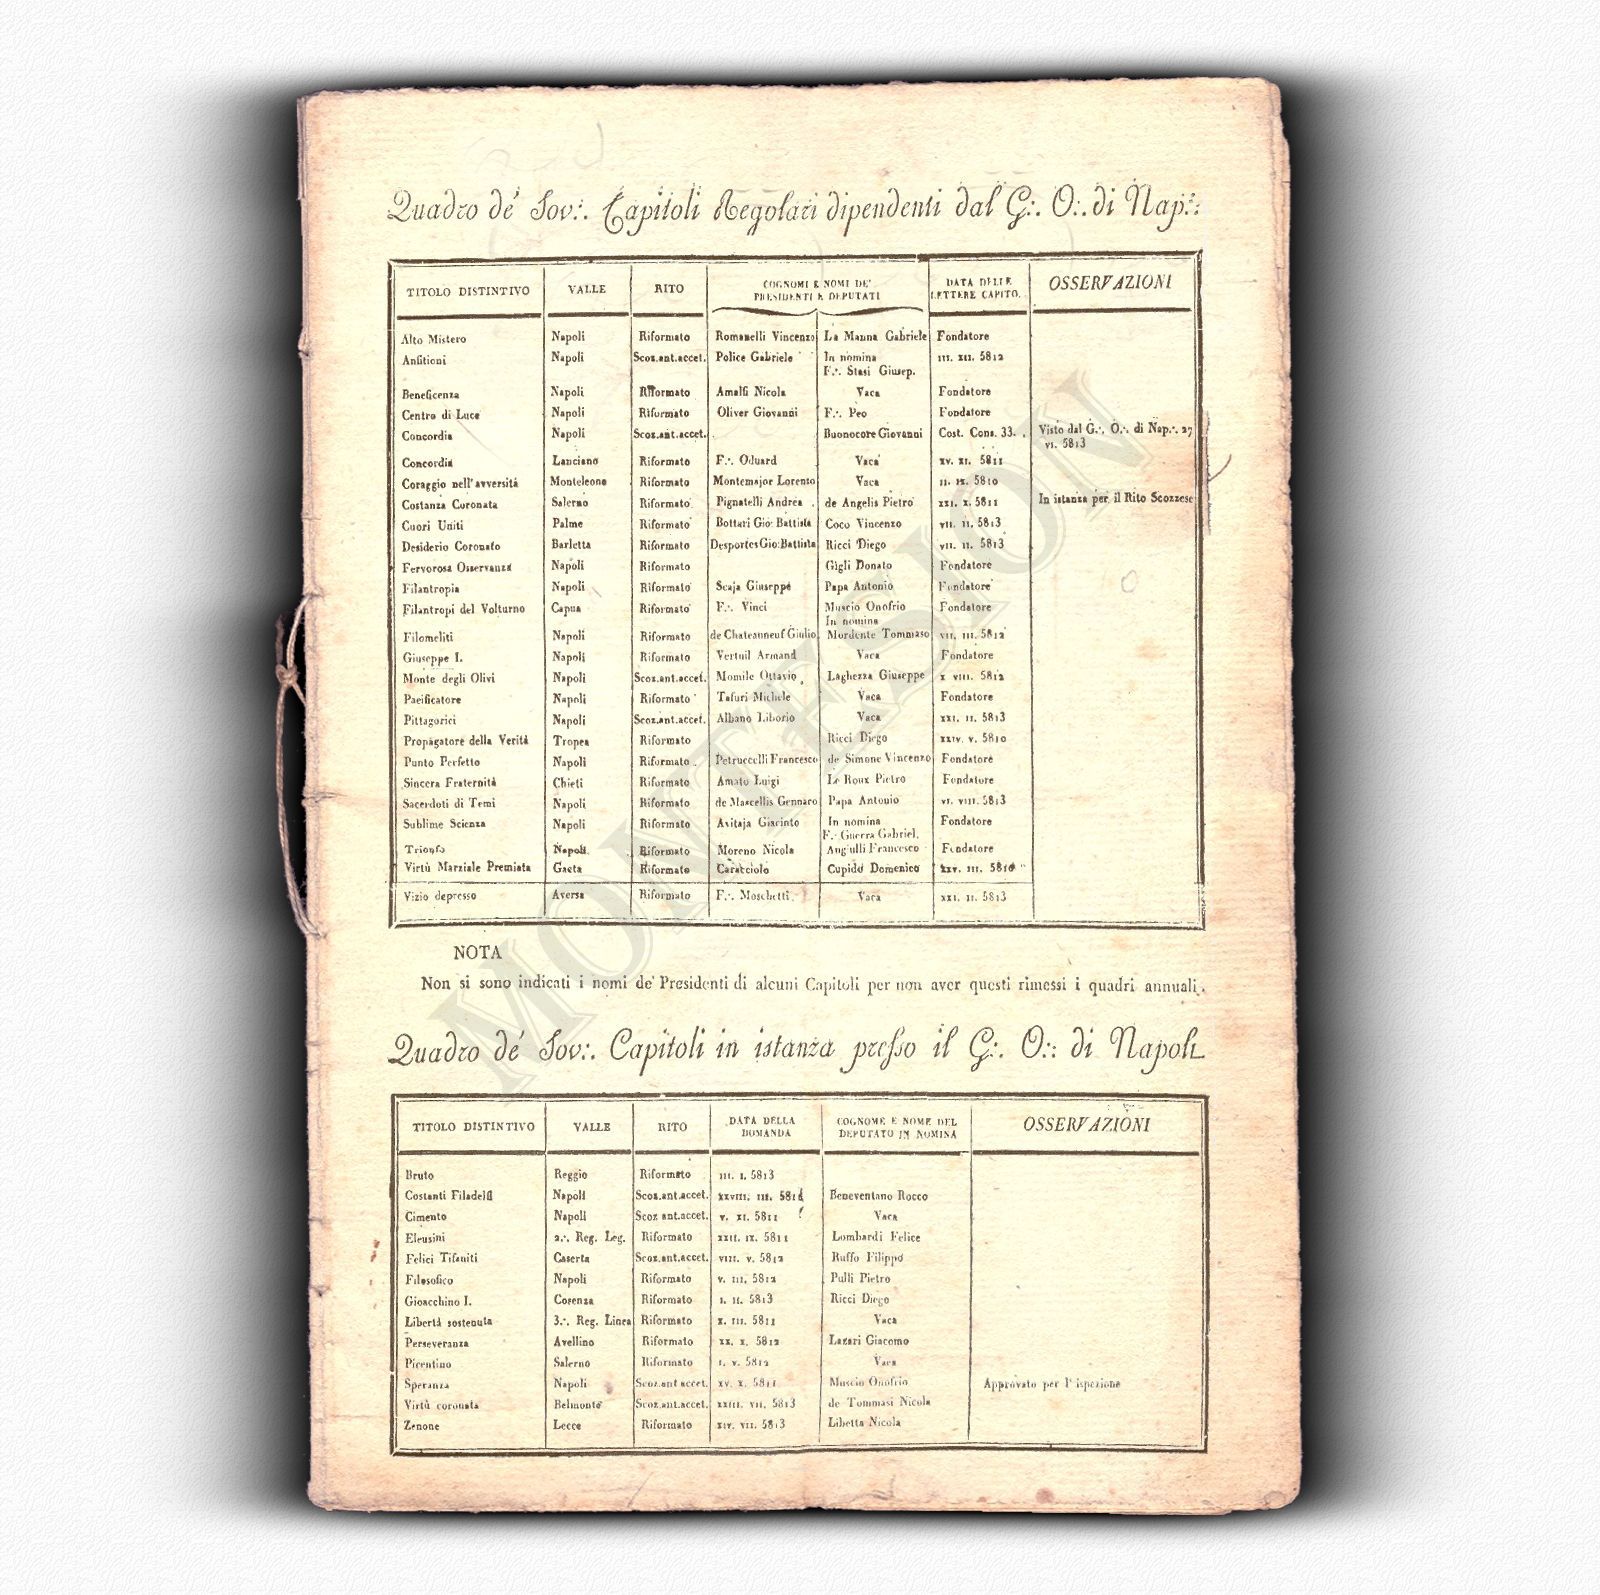 Quadro de' Sov∴ Capitoli Regolari dipendenti dal G∴ O∴ di Nap∴
TITOLO DISTINTIVO VALLE RITO COGNOMI E NOMI DE' PRESIDENTI E DEPUTATI DATA DELLE LETTERE CAPITO. OSSERVAZIONI
Alto Mistero Napoli Riformato Romanelli Vincenzo La Manna Gabriele Fondatore
Anfitioni Napoli Scoz.ant.accet. Police Gabriele In nomina III. XII. 5812
F∴ Stasi Giusep.
Beneficenza Napoli Riformato Amalfi Nicola Vaca Fondatore
Centro di Luce Napoli Riformato Oliver Giovanni F∴ Peo Fondatore
Concordia Napoli Scoz.ant.accet. Buonocore Giovanni Cost. Cons. 33. Visto dal G∴ O∴ di Nap∴ 27
VI. 5813
Concordia Lanciano Riformato F∴ Oduard Vaca XV. XI. 5811
Coraggio nell'avversità Monteleone Riformato Montemajor Lorento Vaca II. IX. 5810
Costanza Coronata Salerno Riformato Pignatelli Andrea de Angelis Pietro XXI. X. 5811 In istanza per il Rito Scozzese
Cuori Uniti Palme Riformato Bottari Gio: Battista Coco Vincenzo VII. II. 5813
Desiderio Coronato Barletta Riformato Desportes Gio: Battista Ricci Diego VII. II. 5813
Fervorosa Osservanza Napoli Riformato Gigli Donato Fondatore
Filantropia Napoli Riformato Scaja Giuseppe Papa Antonio Fondatore
Filantropi del Volturno Capua Riformato F∴ Vinci Muscio Onofrio Fondatore
In nomina
Filomeliti Napoli Riformato de Chateauneuf Giulio Mordente Tommaso VII. III. 5812
Giuseppe I. Napoli Riformato Vertuil Armand Vaca Fondatore
Monte degli Olivi Napoli Scoz.ant.accet. Momile Ottavio Laghezza Giuseppe X VIII. 5812
Pacificatore Napoli Riformato Tafuri Michele Vaca Fondatore
Pittagorici Napoli Scoz.ant.accet. Albano Liborio Vaca XXI. II. 5813
Propagatore della Verità Tropea Riformato Ricci Diego XXIV. V. 5810
Punto Perfetto Napoli Riformato Petruccelli Francesco de Simone Vincenzo Fondatore
Sincera Fraternità Chieti Riformato Amato Luigi Le Roux Pietro Fondatore
Sacerdoti di Temi Napoli Riformato de Mascellis Gennaro Papa Antonio VI. VIII. 5813
Sublime Scienza Napoli Riformato Avitaja Giacinto In nomina Fondatore
F∴ Guerra Gabriel.
Trionfo Napoli Riformato Moreno Nicola Angiulli Francesco Fondatore
Virtù Marziale Premiata Gaeta Riformato Caracciolo Cupido Domenico XXV. III. 5810
Vizio depresso Aversa Riformato F∴ Moschetti Vaca XXI. II. 5813
NOTA
Non si sono indicati i nomi de' Presidenti di alcuni Capitoli per non aver questi rimessi i quadri annuali.
Quadro de' Sov∴ Capitoli in istanza presso il G∴ O∴ di Napoli
TITOLO DISTINTIVO VALLE RITO DATA DELLA DOMANDA COGNOME E NOME DEL DEPUTATO IN NOMINA OSSERVAZIONI
Bruto Reggio Riformato III. I. 5813
Costanti Filadelfi Napoli Scoz.ant.accet. XXVIII. III. Beneventano Rocco
Cimento Napoli Scoz ant.accet. V. XI. 5811 Vaca
Eleusini 2∴ Reg. Leg. Riformato XXII. IX. 5811 Lombardi Felice
Felici Tifaniti Caserta Scoz.ant.accet. VIII. V. 5812 Ruffo Filippo
Filosofico Napoli Riformato V. III. 5812 Pulli Pietro
Gioacchino I. Cosenza Riformato I. II. 5813 Ricci Diego
Libertà sostenuta 3∴ Reg. Linea Riformato X. III. 5811 Vaca
Perseveranza Avellino Riformato XX. X. 5812 Lazari Giacomo
Picentino Salerno Riformato I. V. 5812 Vaca
Speranza Napoli Scoz.ant accet. XV. X. 5811 Muscio Onofrio Approvato per l'ispezione
Virtù coronata Belmonte Scoz.ant.accet. XXIII. VII. 5813 de Tommasi Nicola
Zenone Lecce Riformato XIV. VII. 5813 Libetta Nicola
MONTESION